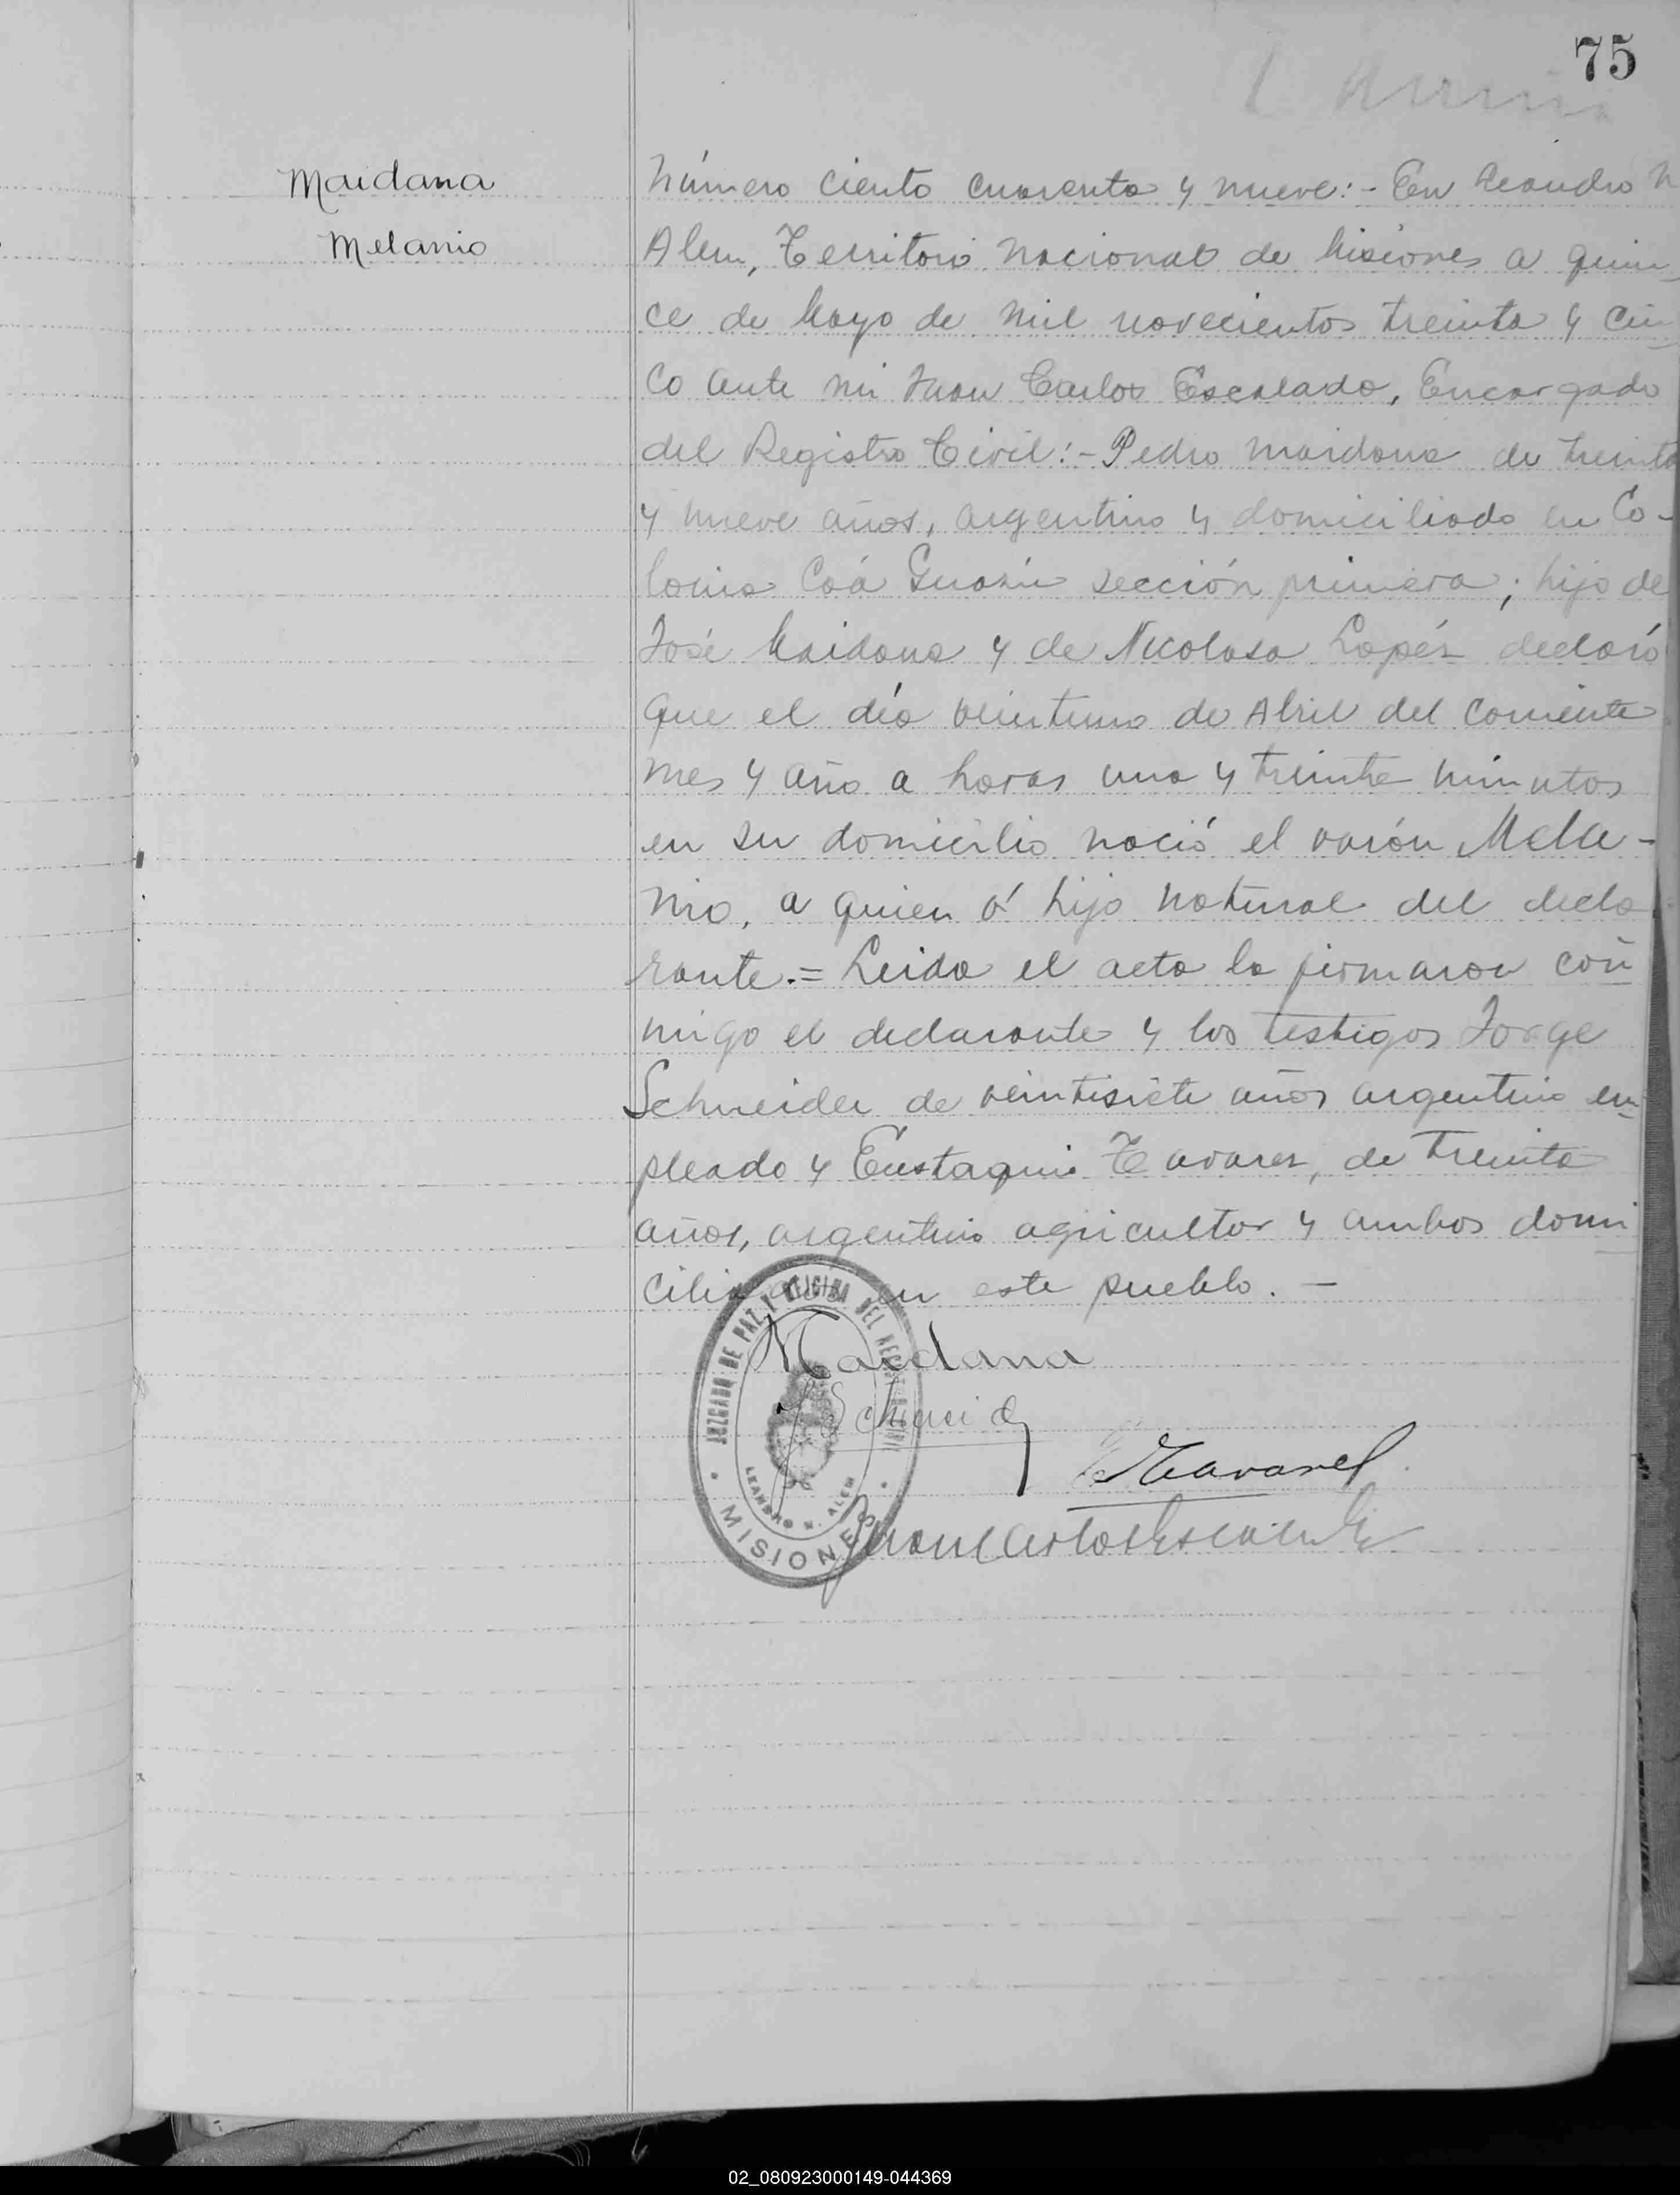 75
Maidana
Melanio
Número ciento cuarenta y nueve:- En Leandro N
Alem, Territorio Nacional de Misiones a quin-
ce de Mayo de mil novecientos treinta y cin-
co ante mi Juan Carlos Escalada, Encargado
del Registro Civil:- Pedro Maidana de treinta
y nueve años, argentino y domiciliado en Co-
lonia Caá Guazú sección primera; hijo de
José Maidana y de Nicolasa Lopéz declaró
que el día veintiuno de Abril del corriente
mes y año a horas una y treinta minutos
en su domicilio nació el varón Mela-
nio, a quien ó hijo natural del decla
rante.= Leida el acta la firmaron con
migo el declarante y los testigos Jorge
Schneider de veintisiete años argentino em-
pleado y Eustaquio Tavarez, de treinta
años, argentino agricultor y ambos domi
ciliados en este pueblo. —
Maidana
Schneider
E Tavarez
Juan Carlos Escalada
JUZGADO DE PAZ Y OFICINA DEL REGISTRO CIVIL
LEANDRO N. ALEM
· MISIONES ·
02_080923000149-044369